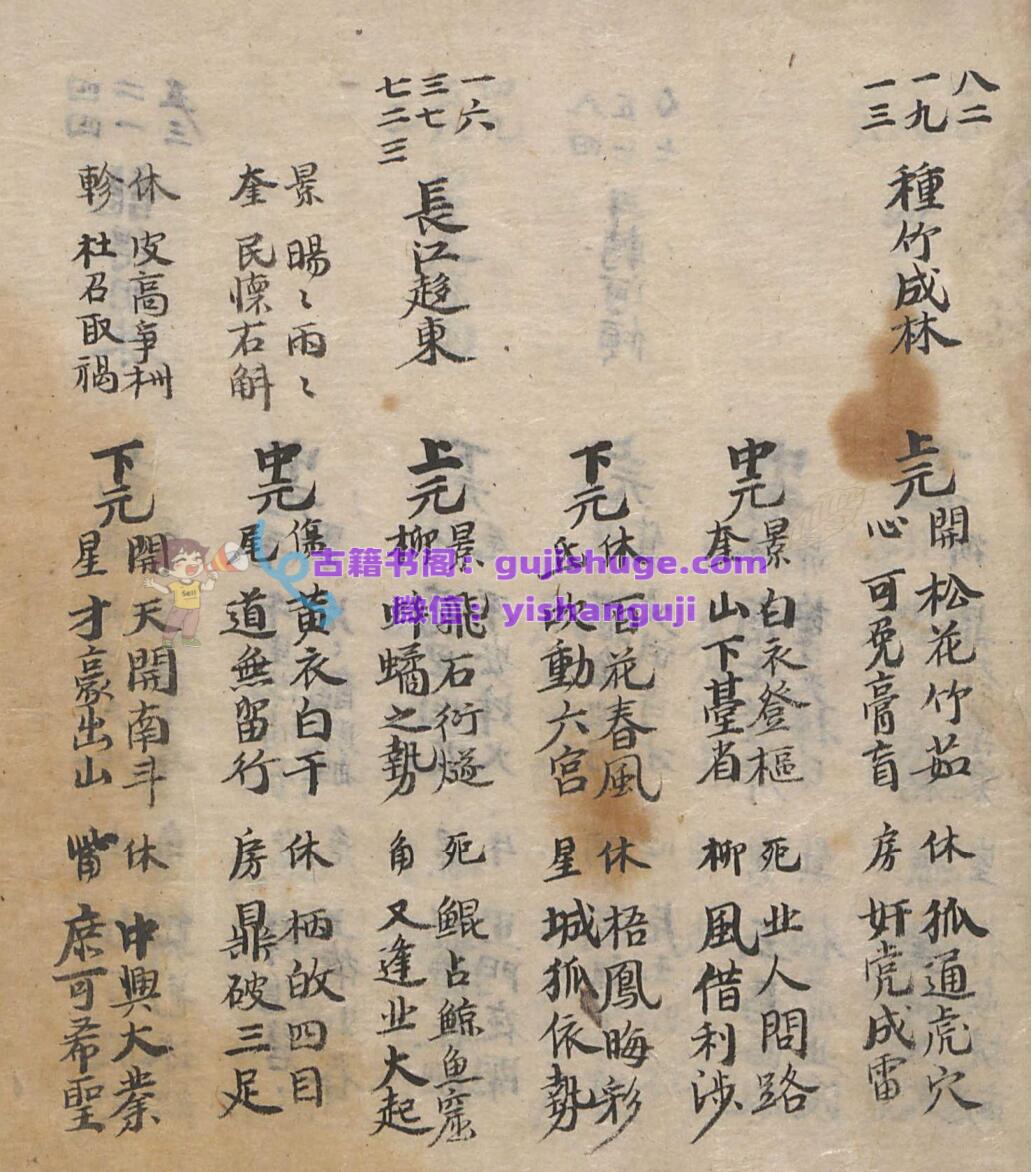 八二
一九
一三
種竹成林
上元
開 松花竹茹
心 可免膏肓
休 狐通虎穴
房 奸党成雷
中元
景 白衣登樞
奎 山下臺省
死 业人問路
柳 風借利涉
下元
休 百花春風
氐 坎動六宫
休 梧鳳晦彩
星 城狐依勢
一六
三七
七二三
長江趍東
上元
景 飛石衍燧
柳 之勢
死 鲲占鲸鱼窟
角 又逢业大起
景 暘〻雨〻
奎 民懷右
中元
傷 黄衣白干
尾 道無留行
休 栖 四目
房 鼎破三足
休 皮高爭
軫 杜召取禍
下元
開 天開南斗
星 才豪出山
休 中興大業
觜 庶可希聖
古籍书阁：gujishuge.com
微信：yishanguji